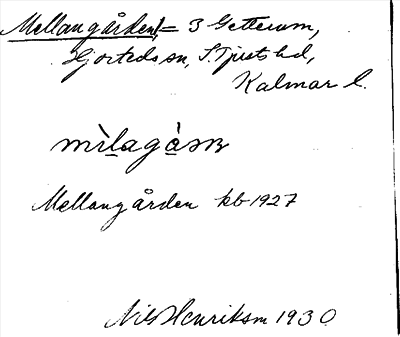 Mellangården = 3 Getterum,
Hjorteds sn, S. Tjusts hd,
Kalmar l.
mìlagàsn
Mellangården kb 1927
Nils Henrikson 1930